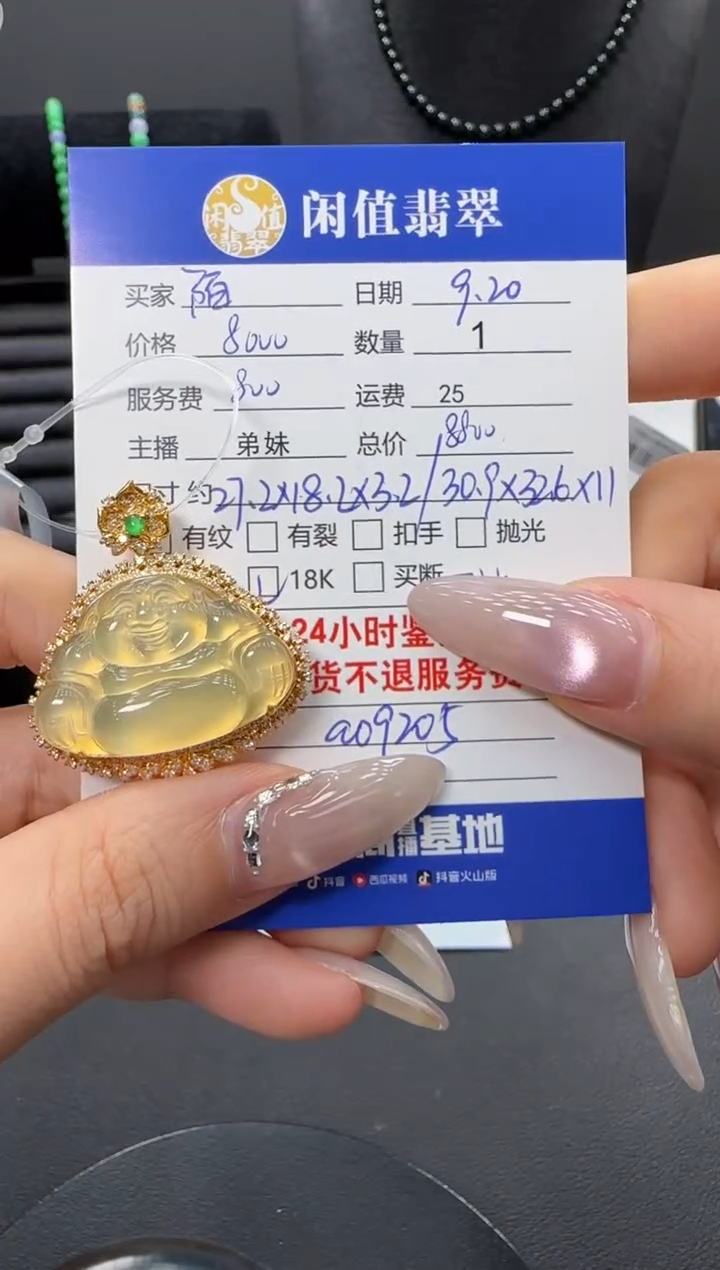 闲值翡翠
闲值翡翠
买家 陌 日期 9.20
价格 8000 数量 1
服务费 800 运费 25
主播 弟妹 总价 8800
寸 约 27.2X18.2X3.2/30.9X32.6X11
有纹 有裂 扣手 抛光
18K 买断
24小时鉴
货不退服务费
a09205
播基地
抖音 西瓜视频 抖音火山版